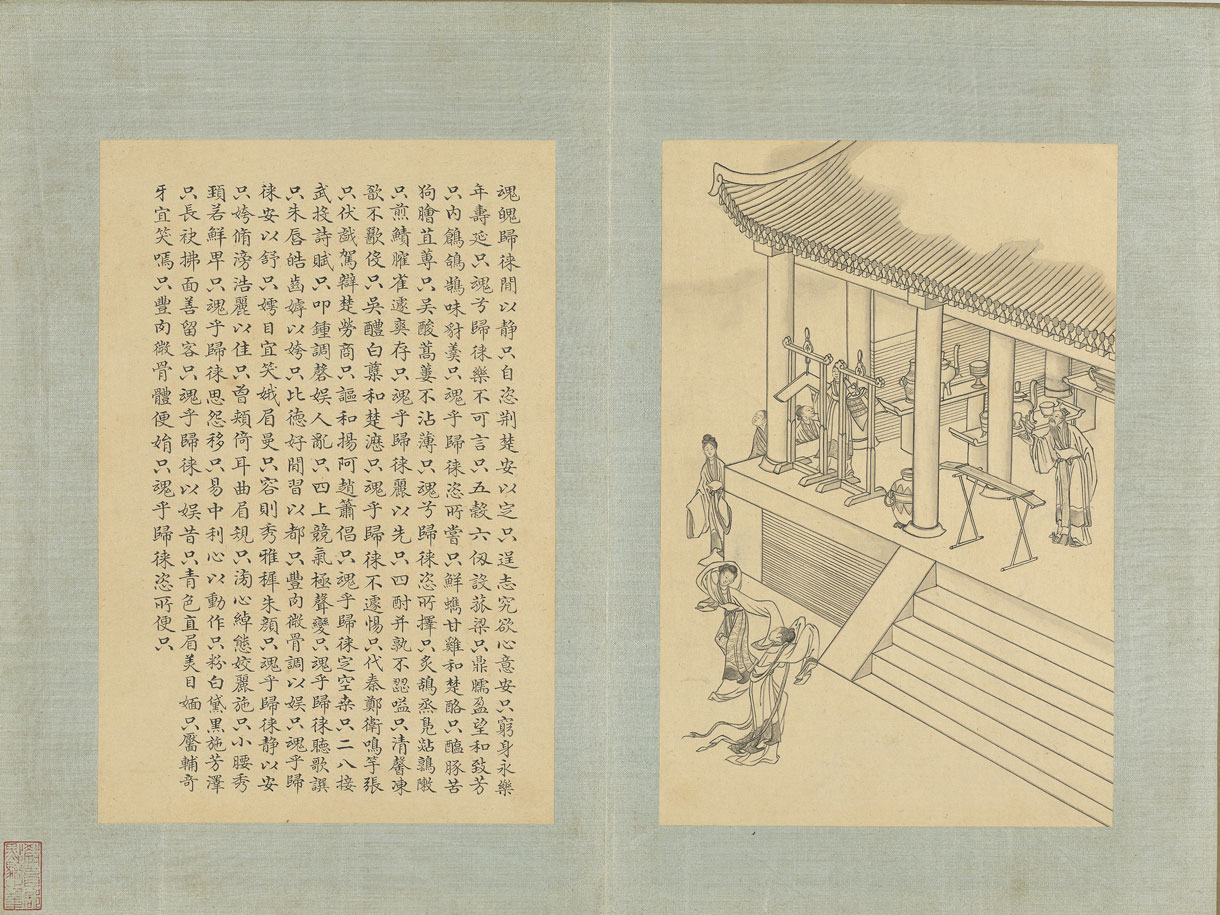 魂魄歸徠閒以静只自恣荊楚安以定只逞志究欲心意安只窮身永樂
年壽延只魂兮歸徠樂不可言只五穀六仞設菰梁只鼎臑盈望和致芳
只内鶬鴿鵠味豺羹只魂乎歸徠恣所嘗只鮮蠵甘雞和楚酪只醢豚苦
狗膾苴蓴只吳酸蒿蔞不沾薄只魂兮歸徠恣所擇只炙鴰烝鳧煔鶉敶
只煎鰿臛雀遽爽存只魂乎歸徠麗以先只四酎并孰不歰嗌只清馨凍
歓不歠役只吳醴白蘗和楚瀝只魂乎歸徠不遽惕只代秦鄭衛鳴竽張
只伏戲駕辯楚勞商只謳和揚阿趙簫倡只魂乎歸徠定空桑只二八接
武投詩賦只叩鍾調磬娛人亂只四上競氣極聲變只魂乎歸徠聽歌譔
只朱唇皓齒嫭以姱只比德好閒習以都只豐肉微骨調以娛只魂乎歸
徠安以舒只嫮目宜笑娥眉曼只容則秀雅穉朱顏只魂乎歸徠静以安
只姱脩滂浩麗以佳只曾頰倚耳曲眉規只滂心綽態姣麗施只小腰秀
頸若鮮卑只魂乎歸徠思怨移只易中利心以動作只粉白黛黑施芳澤
只長袂拂面善留客只魂乎歸徠以娛昔只青色直眉美目媔只靨輔奇
牙宜笑嘕只豐肉微骨體便娟只魂乎歸徠恣所便只